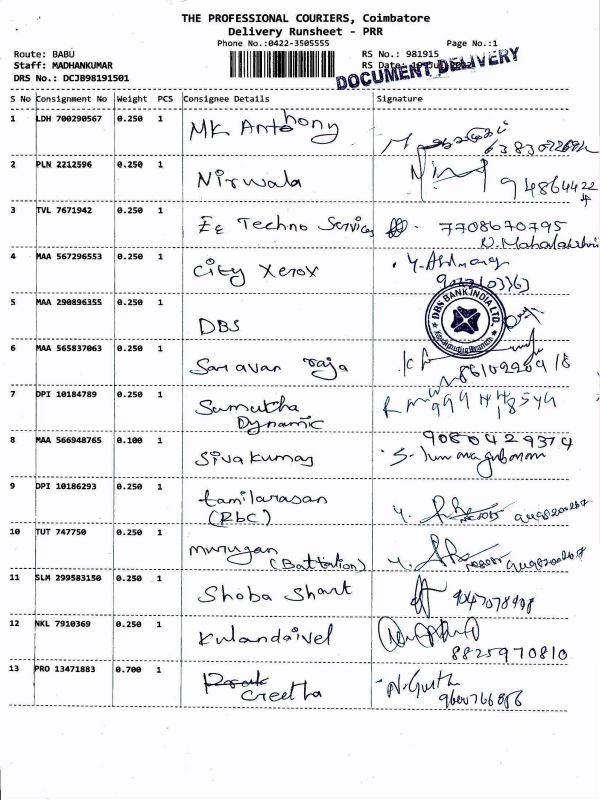 THE PROFESSIONAL COURIERS, Coimbatore
Delivery Runsheet - PRR
Phone No.:0422-3505555
Page No.:1
Route: BABU
RS No.: 981915
Staff: MADHANKUMAR
RS Date:
DOCUMENT DELIVERY
DRS No.: DCJB98191501
S No Consignment No Weight PCS Consignee Details Signature
1 LDH 700290567 0.250 1 MK Anthony
2 PLN 2212596 0.250 1 Nirwala
94864422
3 TVL 7671942 0.250 1 Ee Techno Services 7708670795
N. Mahalakshmi
4 MAA 567296553 0.250 1 City Xerox
5 MAA 290896355 0.250 1 DBS
DBS BANK INDIA LTD.
6 MAA 565837063 0.250 1 Saravan raja
7 DPI 10184789 0.250 1 Sumutha
Dynamic
8 MAA 566948765 0.100 1 Sivakumar
9080429374
9 DPI 10186293 0.250 1 tamilarasan
(RbC)
10 TUT 747750 0.250 1 murugan
(Battalion)
11 SLM 299583150 0.250 1 Shoba Shart
12 NKL 7910369 0.250 1 Kulandaivel
8825970810
13 PRO 13471883 0.700 1
Greetha
9600766856